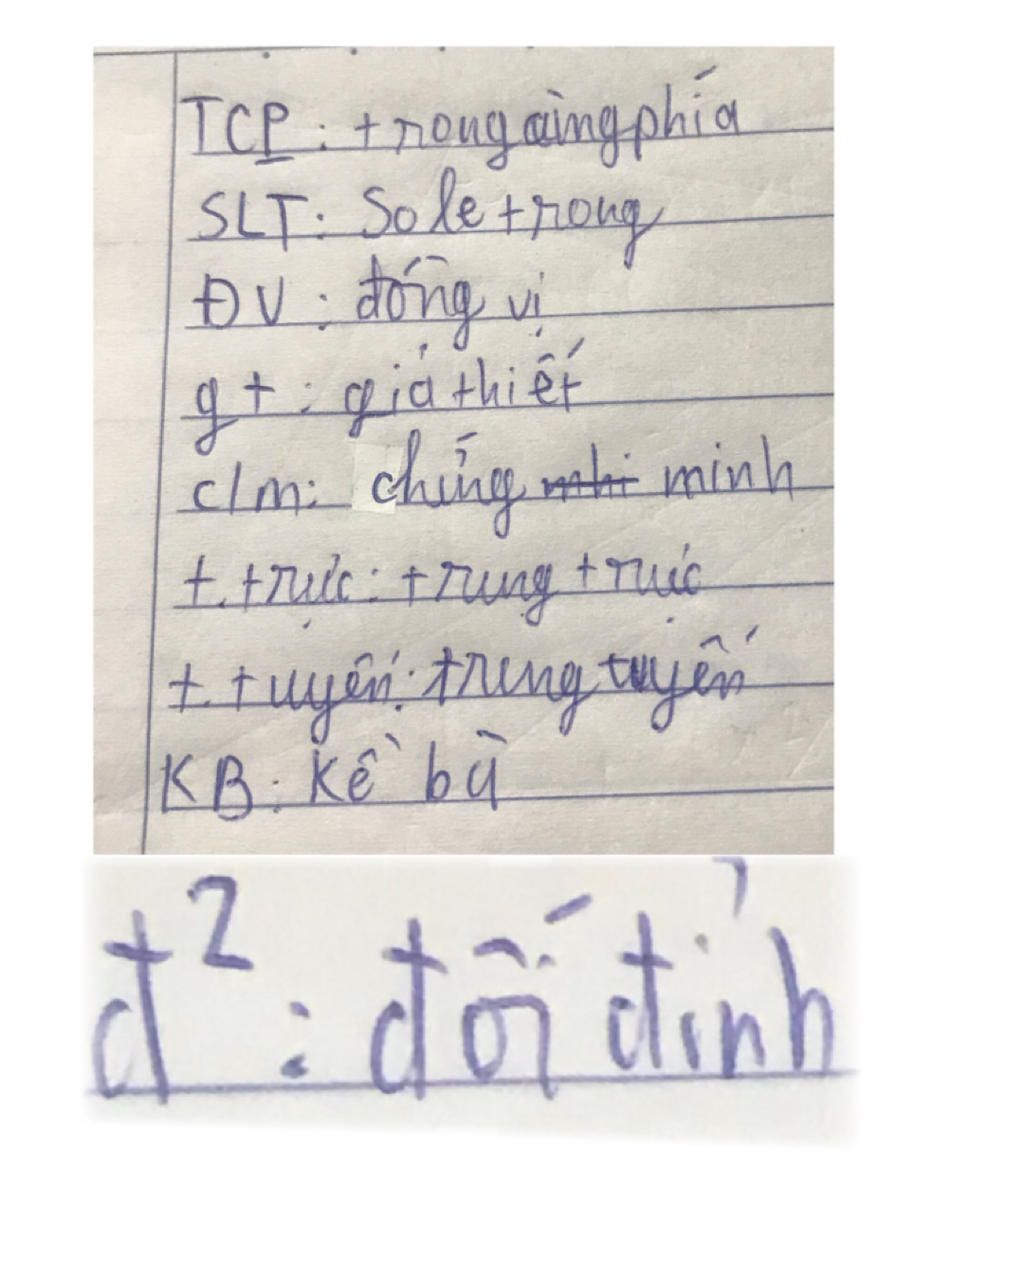 TCP: trong cùng phía
SLT: So le trong
ĐV: đồng vị
gt: giả thiết
c/m: chứng minh
t.trực: trung trực
t.tuyến: trung tuyến
KB: Kề bù
đ²: đối đỉnh